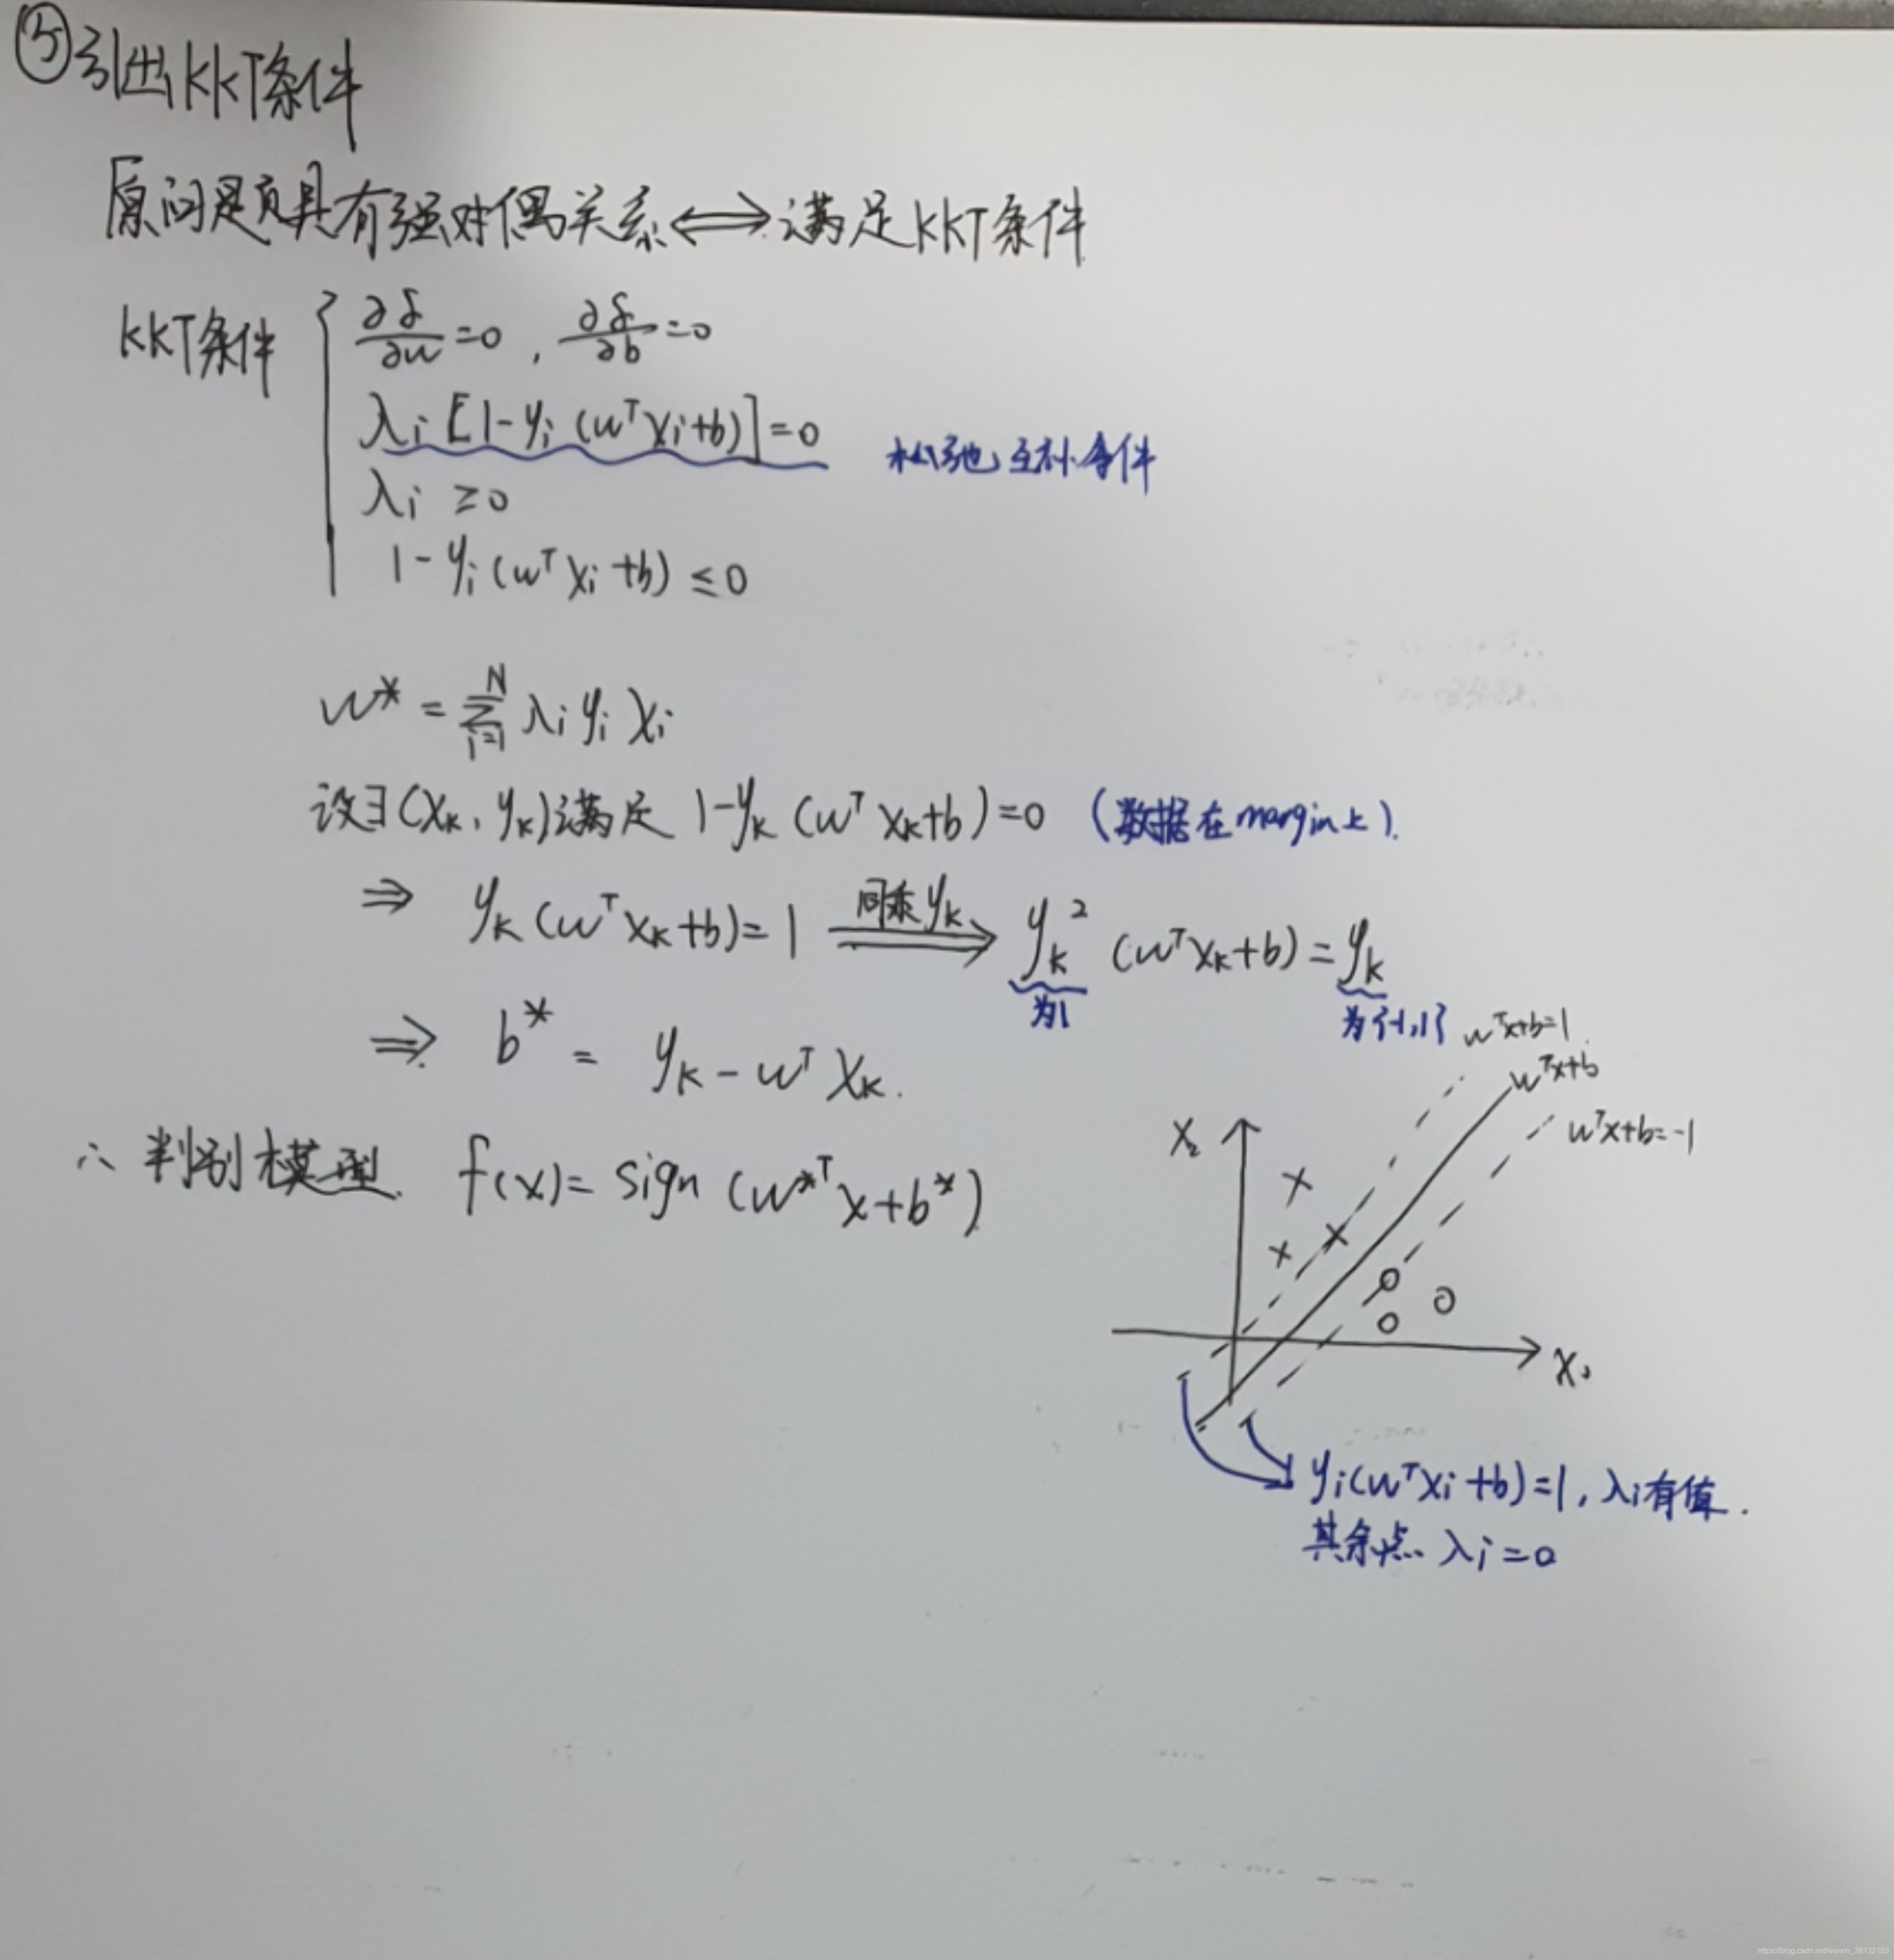 ⑤引出KKT条件
原问题具有强对偶关系⟺满足KKT条件
KKT条件 { ∂L/∂w=0 , ∂L/∂b=0
λi [1-yi (wᵀxi+b)]=0 松弛互补条件
λi ≥0
1-yi(wᵀxi+b) ≤0
w* = Σ_{i=1}^{N} λi yi xi
设∃(xk, yk)满足 1-yk (wᵀxk+b)=0 (数据在margin上).
⇒ yk(wᵀxk+b)=1 同乘yk ⟹ yk² (wᵀxk+b)=yk
为1 为{-1,1}
⇒ b* = yk-wᵀxk.
∴ 判别模型 f(x)= sign (w*ᵀx+b*)
wᵀx+b=1
wᵀx+b
wᵀx+b=-1
x₂
x₁
yi(wᵀxi+b)=1, λi有值.
其余点 λi=0
https://blog.csdn.net/weixin_38132153